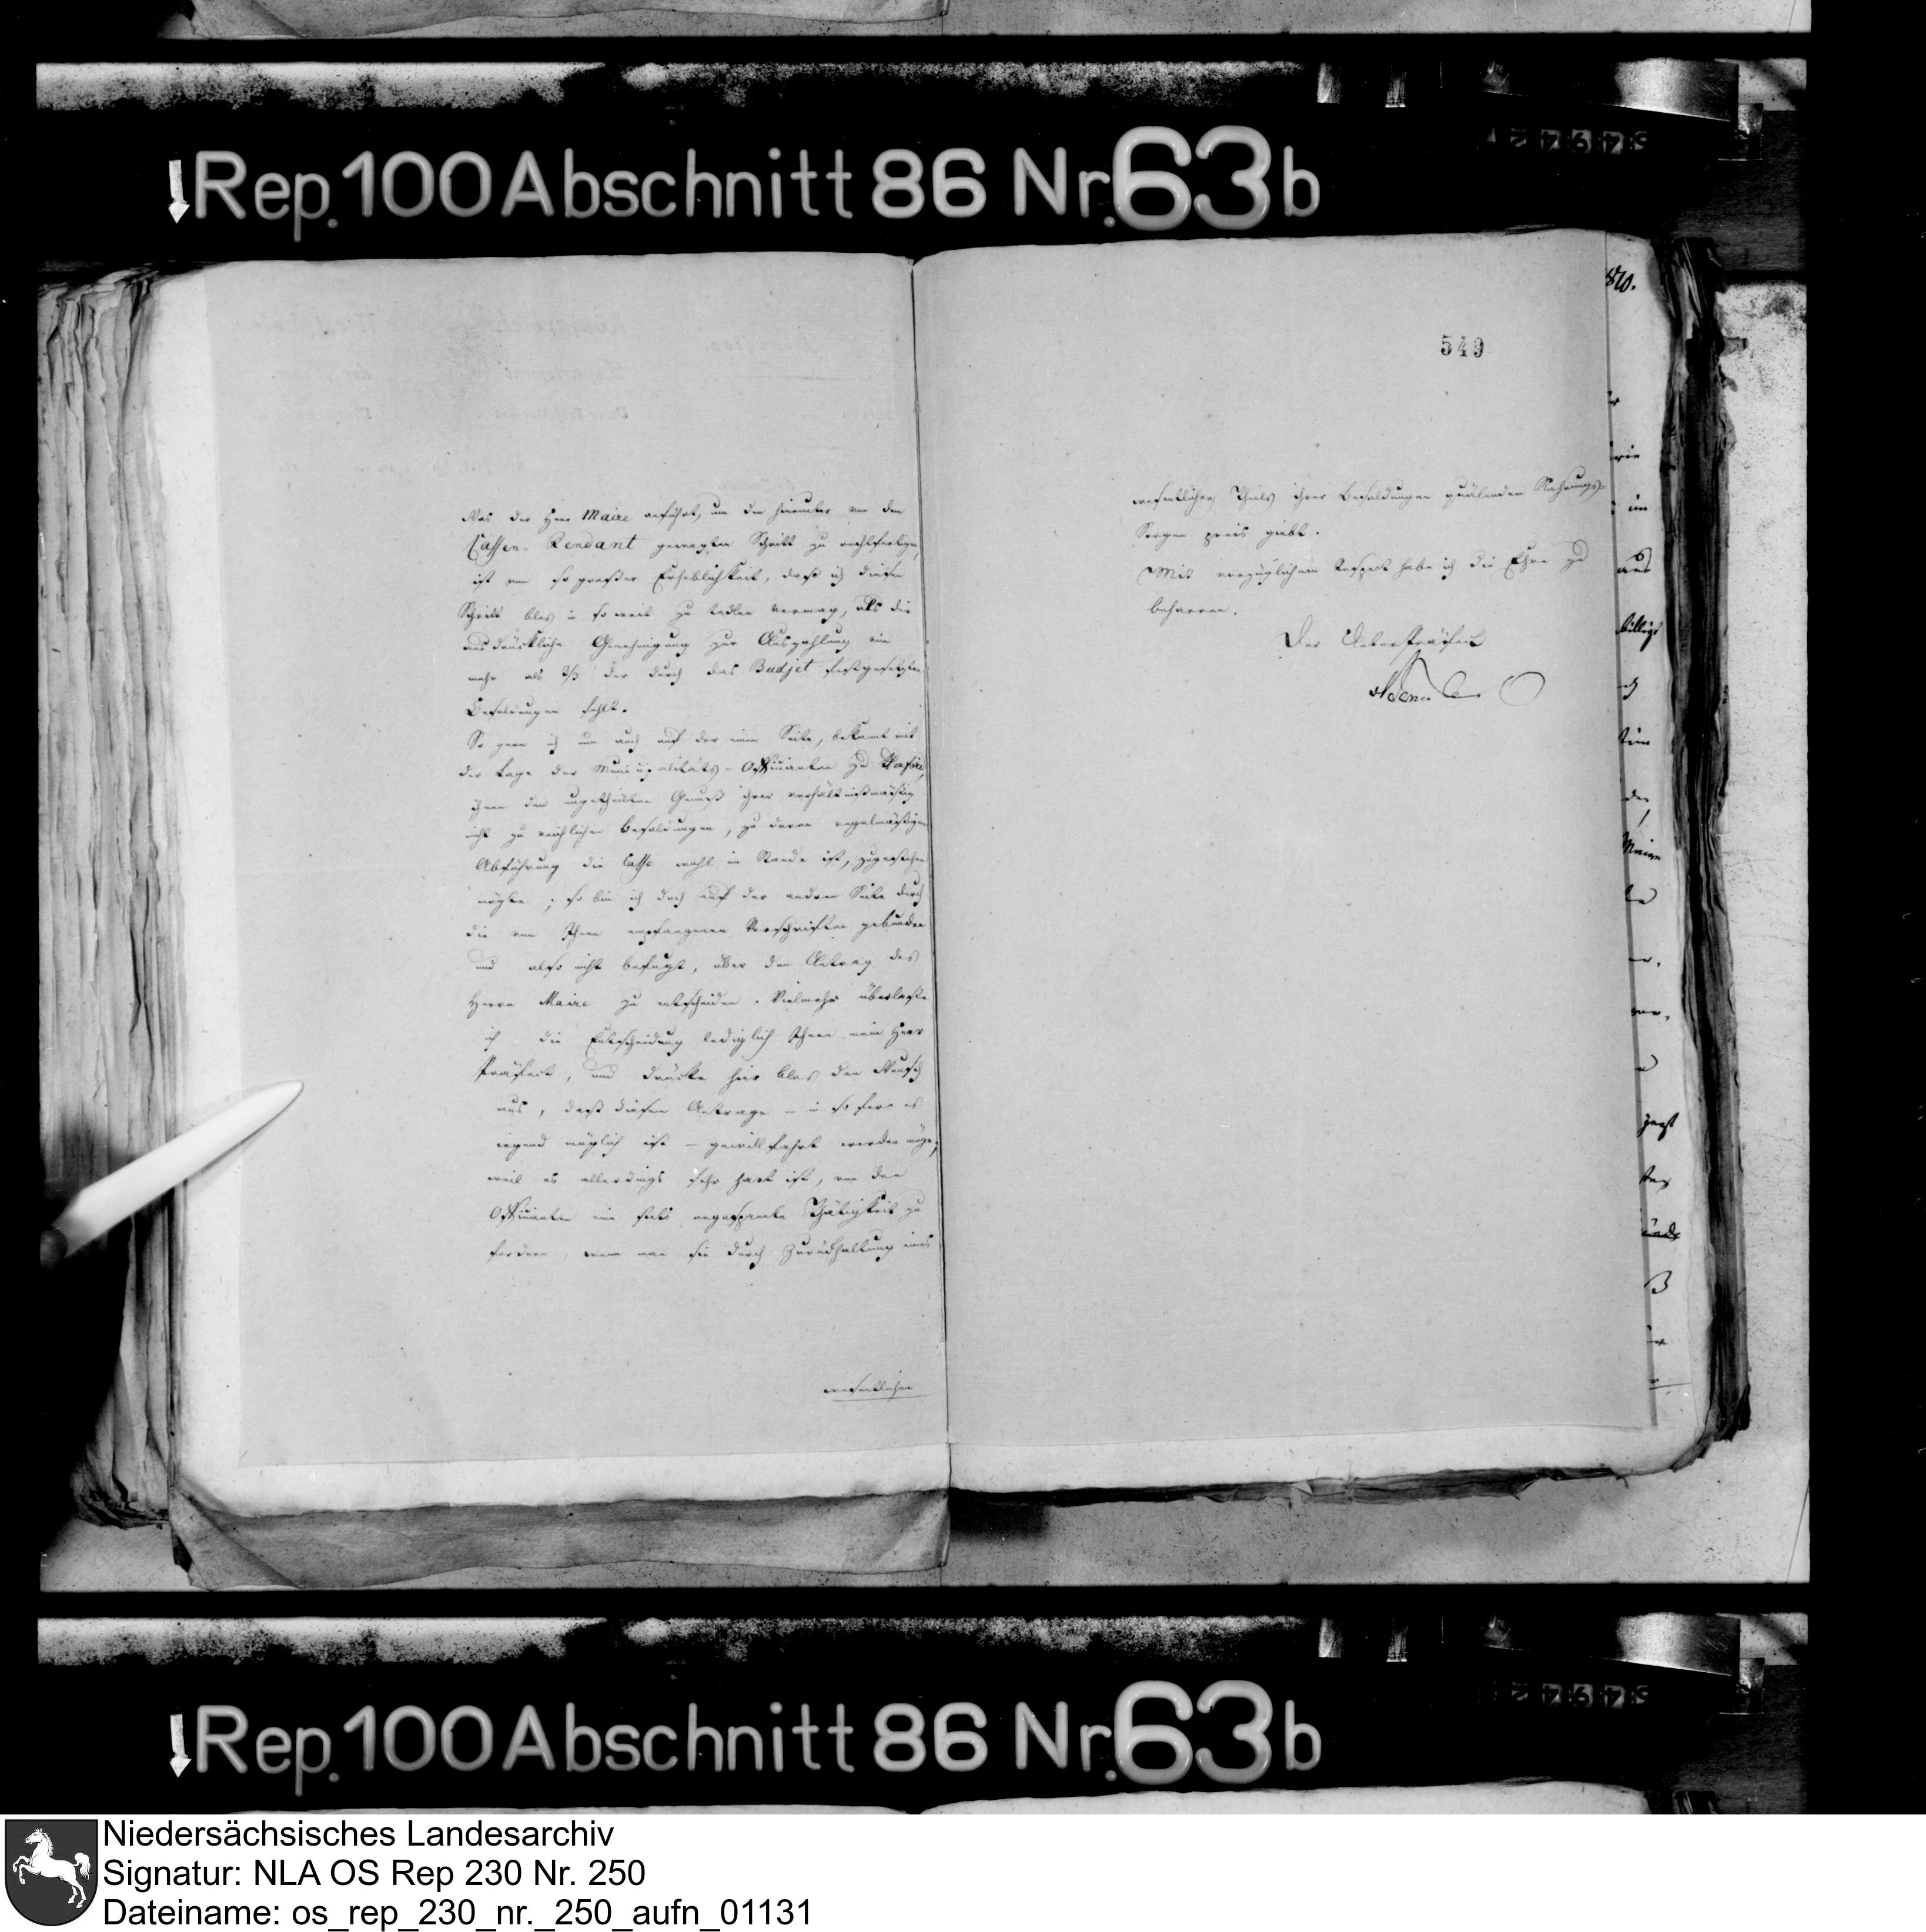 Rep. 100 Abschnitt 86 Nr. 63 b
549
Was der Herr Maire anführt, um den hierunter von dem
Cassen-Rendant gewagten Schritt zu rechtfertigen,
ist von so großer Erheblichkeit, daß ich diesen
Schritt blos in so weit zu tadlen vermag, als die
ausdrückliche Genehmigung zur Auszahlung von
mehr als 2/3 der durch das Budjet festgesetzten
Besoldungen fehlt.
So gern ich nun auch auf der einen Seite, bekannt mit
der Lage der Municipalitäts-Officianten zu
ihnen den ungetheilten Genuß ihrer verhältnißmäßig
nicht zu reichlichen Besoldungen, zu deren regelmäßigen
Abführung die Casse wohl im Stande ist, zugestehen
mögte; so bin ich doch auf der andren Seite durch
die von Ihnen empfangenen Vorschriften gebunden
und also nicht befugt, über den Antrag des
Herrn Maire zu entscheiden. Vielmehr überlasse
ich die Entscheidung lediglich Ihnen mein Herr
Präfect, und drücke hier blos den Wunsch
aus, daß diesem Antrage – in so fern es
irgend möglich ist – gewillfahrt werden möge,
weil es allerdings sehr hart ist, von den
Officianten eine stets angespannte Thätigkeit zu
fordern, wenn man sie durch Zurückhaltung eines
wesentlichen
wesentlichen Theils ihrer Besoldungen quälenden Nahrungs-
Sorgen preis giebt.
Mit vorzüglichem Respect habe ich die Ehre zu
beharren.
Der Unterpräfect
Rep. 100 Abschnitt 86 Nr. 63 b
Niedersächsisches Landesarchiv
Signatur: NLA OS Rep 230 Nr. 250
Dateiname: os_rep_230_nr._250_aufn_01131